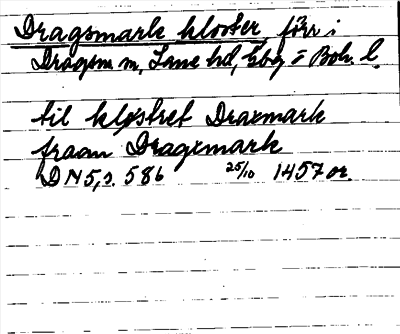 Dragsmark kloster, förr i
Dragsm sn, Lane hd, Gbg o Boh. l.
til klostret Draxmark
fraan Dragxmark
DN 5, s. 586 25/10 1457 or.